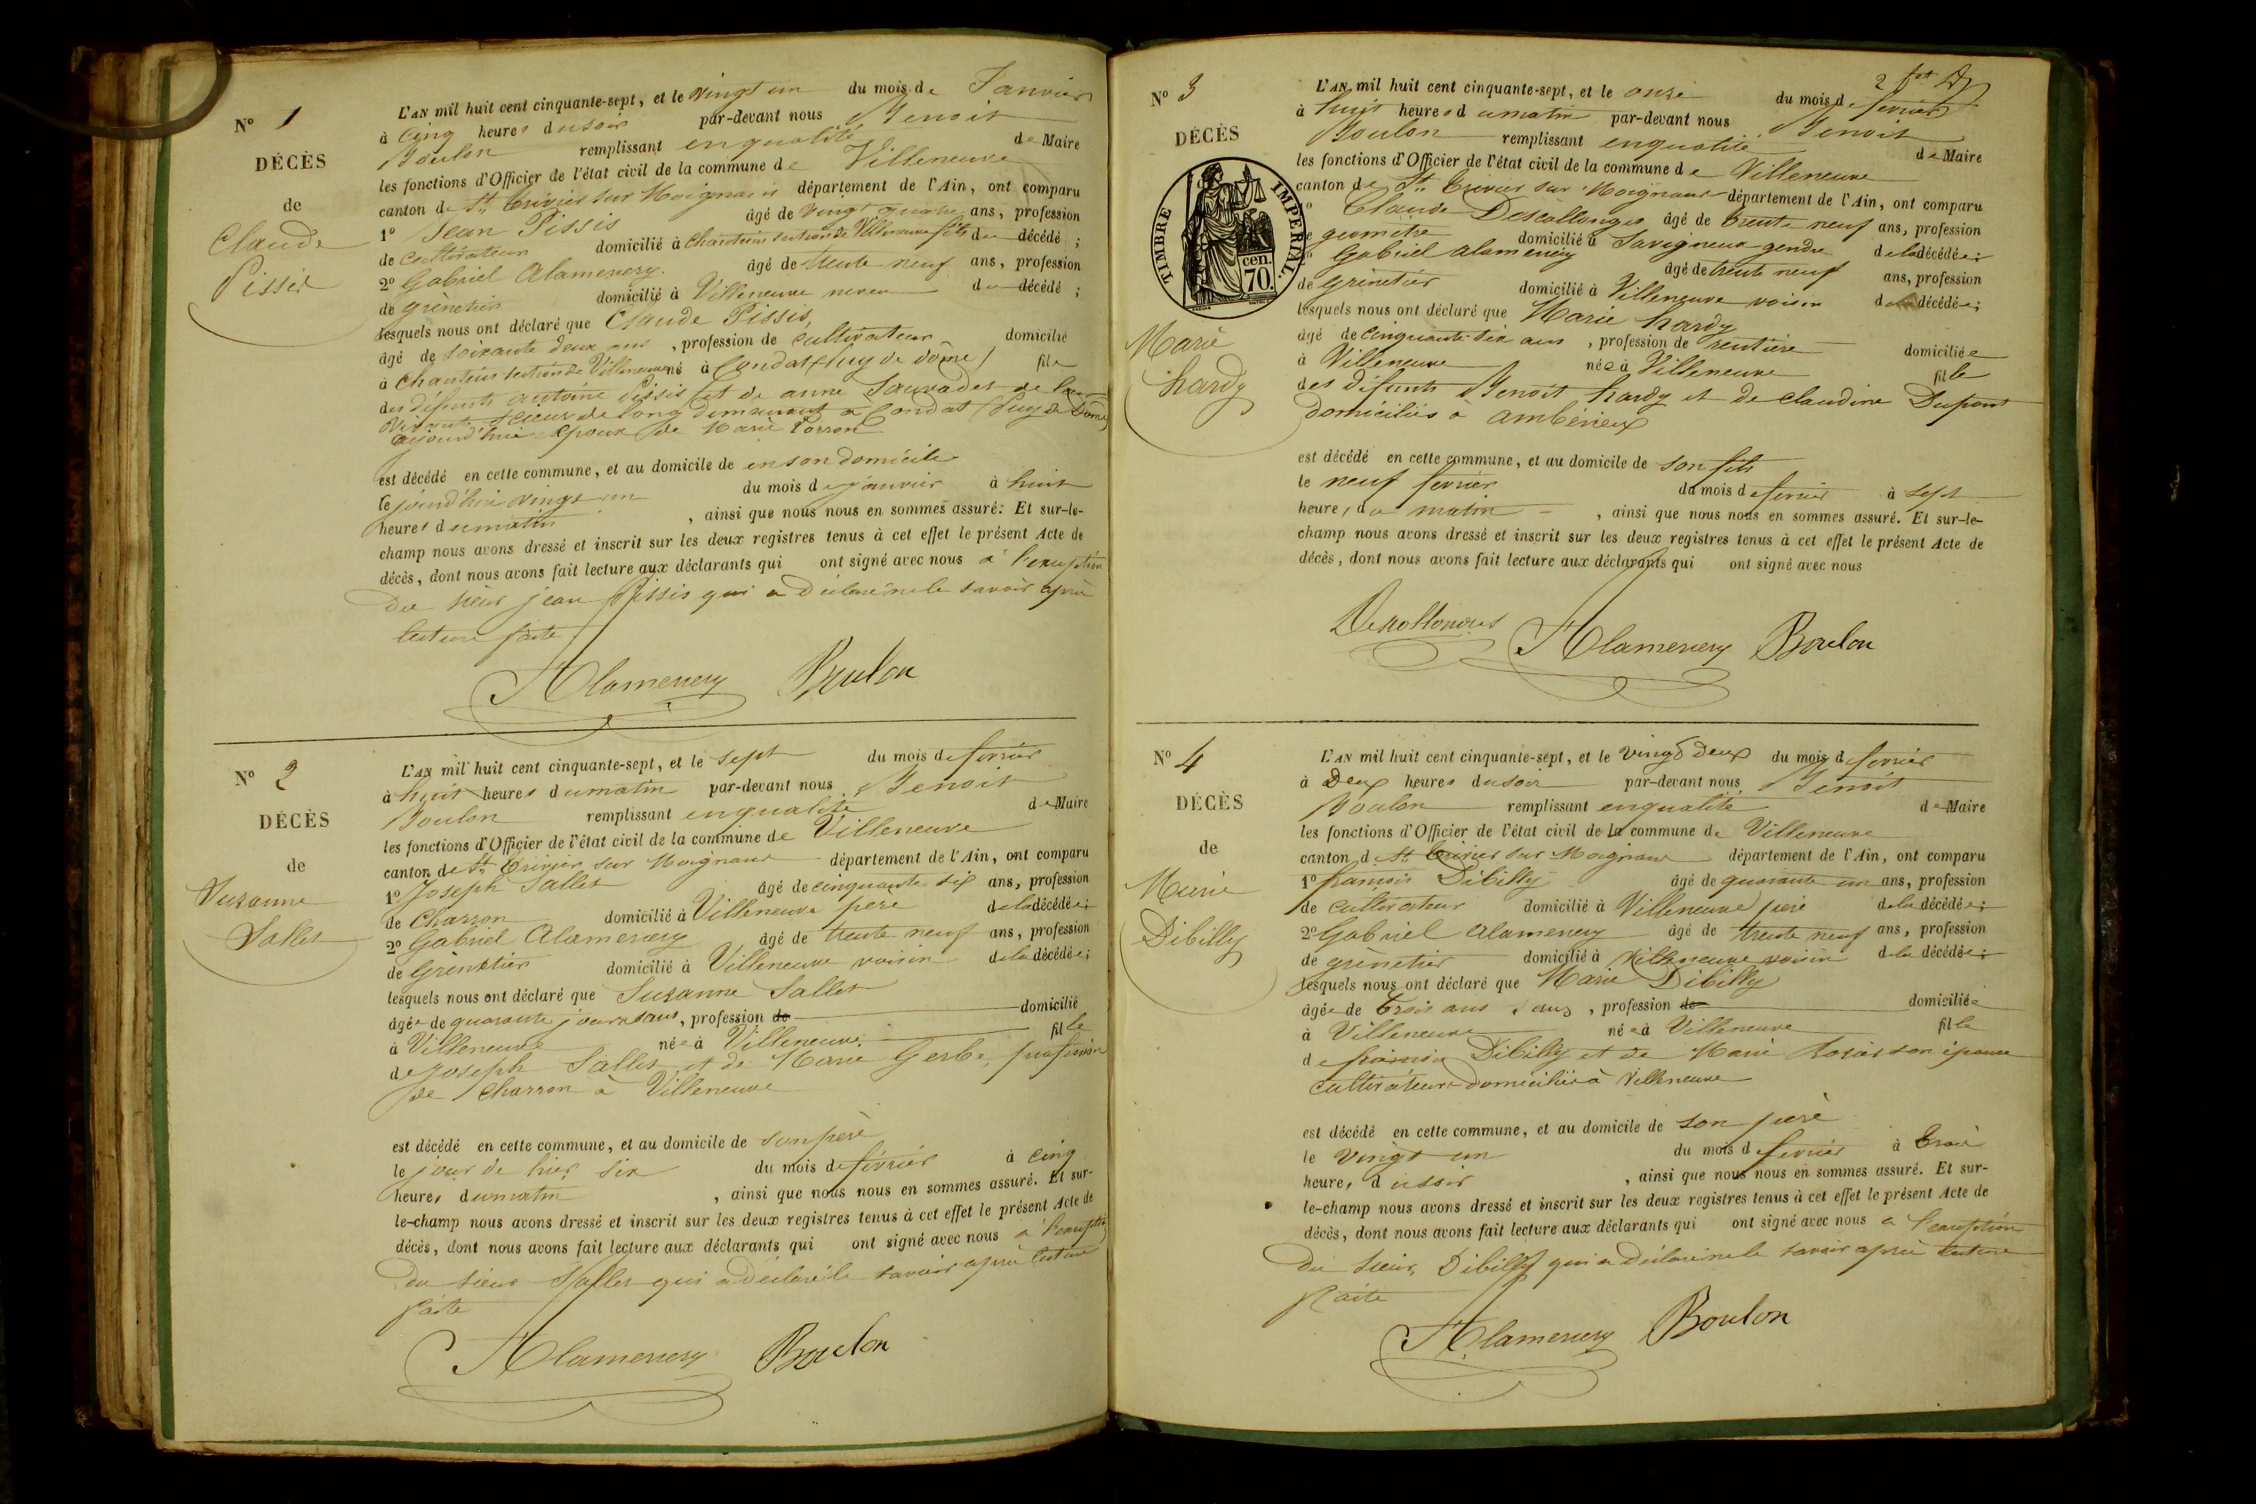 N° 1
DÉCÈS
de
Claude
Pissis
L'AN mil huit cent cinquante-sept, et le vingt un du mois de Janvier
à cinq heures du soir par-devant nous Benoit
Boulon remplissant en qualité de Maire
les fonctions d'Officier de l'état civil de la commune de Villeneuve
canton de St Trivier sur Moignans département de l'Ain, ont comparu
1° Jean Pissis âgé de vingt quatre ans, profession
de cultivateur domicilié à Chanteins section de Villeneuve fils du décédé ;
2° Gabriel Alamercery âgé de trente neuf ans, profession
de grènetier domicilié à Villeneuve neveu du décédé ;
lesquels nous ont déclaré que Claude Pissis,
âgé de soixante deux ans, profession de cultivateur domicilié
à Chanteins section de Villeneuve né à Condat (Puy de Dôme) fils
des défunts Antoine Pissis et de Anne Sauvadet de leur
vivant scieur de long demeurant à Condat (Puy de Dôme)
aujourd'hui époux de Marie
est décédé en cette commune, et au domicile de en son domicile
le jourd'hui vingt un du mois de janvier à huit
heures du matin, ainsi que nous nous en sommes assuré. Et sur-le-
champ nous avons dressé et inscrit sur les deux registres tenus à cet effet le présent Acte de
décès, dont nous avons fait lecture aux déclarants qui ont signé avec nous a l'exception
du sieur jean Pissis qui a déclaré ne le savoir après
lecture faite
Alamercery Boulon
N° 2
DÉCÈS
de
Suzanne
Sallet
L'AN mil huit cent cinquante-sept, et le sept du mois de fevrier
à huit heures du matin par-devant nous Benoit
Boulon remplissant en qualité de Maire
les fonctions d'Officier de l'état civil de la commune de Villeneuve
canton de St Trivier sur Moignans département de l'Ain, ont comparu
1° Joseph Sallet âgé de cinquante six ans, profession
de Charron domicilié à Villeneuve pere de la décédée ;
2° Gabriel Alamercery âgé de trente neuf ans, profession
de Grènetier domicilié à Villeneuve voisin de la décédée ;
lesquels nous ont déclaré que Suzanne Sallet
âgée de quarante jours sans, profession de domicilié
à Villeneuve née à Villeneuve fille
de Joseph Sallet et de Marie Gerbe, profession
de Charron à Villeneuve
est décédé en cette commune, et au domicile de son père
le jour de hier six du mois de fevrier à cinq
heures du matin, ainsi que nous nous en sommes assuré. Et sur-
le-champ nous avons dressé et inscrit sur les deux registres tenus à cet effet le présent Acte de
décès, dont nous avons fait lecture aux déclarants qui ont signé avec nous a l'exception
du sieur Sallet qui a déclaré le savoir après lecture
faite
Alamercery Boulon
N° 3
DÉCÈS
TIMBRE IMPERIAL
cen.
70.
Marie
hardy
2 fet
L'AN mil huit cent cinquante-sept, et le onze du mois de fevrier
à huit heures du matin par-devant nous Benoit
Boulon remplissant en qualité de Maire
les fonctions d'Officier de l'état civil de la commune de Villeneuve
canton de St Trivier sur Moignans département de l'Ain, ont comparu
Claude Descollonges âgé de trente neuf ans, profession
geometre domicilié à Savigneux gendre de la décédée ;
Gabriel Alamercery âgé de trente neuf ans, profession
de grènetier domicilié à Villeneuve voisin de la décédée ;
lesquels nous ont déclaré que Marie hardy
âgé de cinquante six ans, profession de rentière domiciliée
à Villeneuve née à Villeneuve fille
des défunts Benoit hardy et de Claudine Dupont
domiciliés à Ambérieux
est décédé en cette commune, et au domicile de son fils
le neuf fevrier du mois de fevrier à sept
heures du matin, ainsi que nous nous en sommes assuré. Et sur-le-
champ nous avons dressé et inscrit sur les deux registres tenus à cet effet le présent Acte de
décès, dont nous avons fait lecture aux déclarants qui ont signé avec nous
Descollonges Alamercery Boulon
N° 4
DÉCÈS
de
Marie
Dibilly
L'AN mil huit cent cinquante-sept, et le vingt deux du mois de fevrier
à Deux heures du soir par-devant nous Benoit
Boulon remplissant en qualité de Maire
les fonctions d'Officier de l'état civil de la commune de Villeneuve
canton de St Trivier sur Moignans département de l'Ain, ont comparu
1° francois Dibilly âgé de quarante un ans, profession
de cultivateur domicilié à Villeneuve père de la décédée ;
2° Gabriel Alamercery âgé de trente neuf ans, profession
de grènetier domicilié à Villeneuve voisin de la décédée ;
lesquels nous ont déclaré que Marie Dibilly
âgée de trois ans sans, profession de domiciliée
à Villeneuve née à Villeneuve fille
de francois Dibilly et de Marie son épouse
cultivateurs domiciliés à Villeneuve
est décédé en cette commune, et au domicile de son père
le vingt un du mois de fevrier à trois
heures du soir, ainsi que nous nous en sommes assuré. Et sur-
le-champ nous avons dressé et inscrit sur les deux registres tenus à cet effet le présent Acte de
décès, dont nous avons fait lecture aux déclarants qui ont signé avec nous a l'exception
du sieur Dibilly qui a déclaré ne le savoir après lecture
faite
Alamercery Boulon